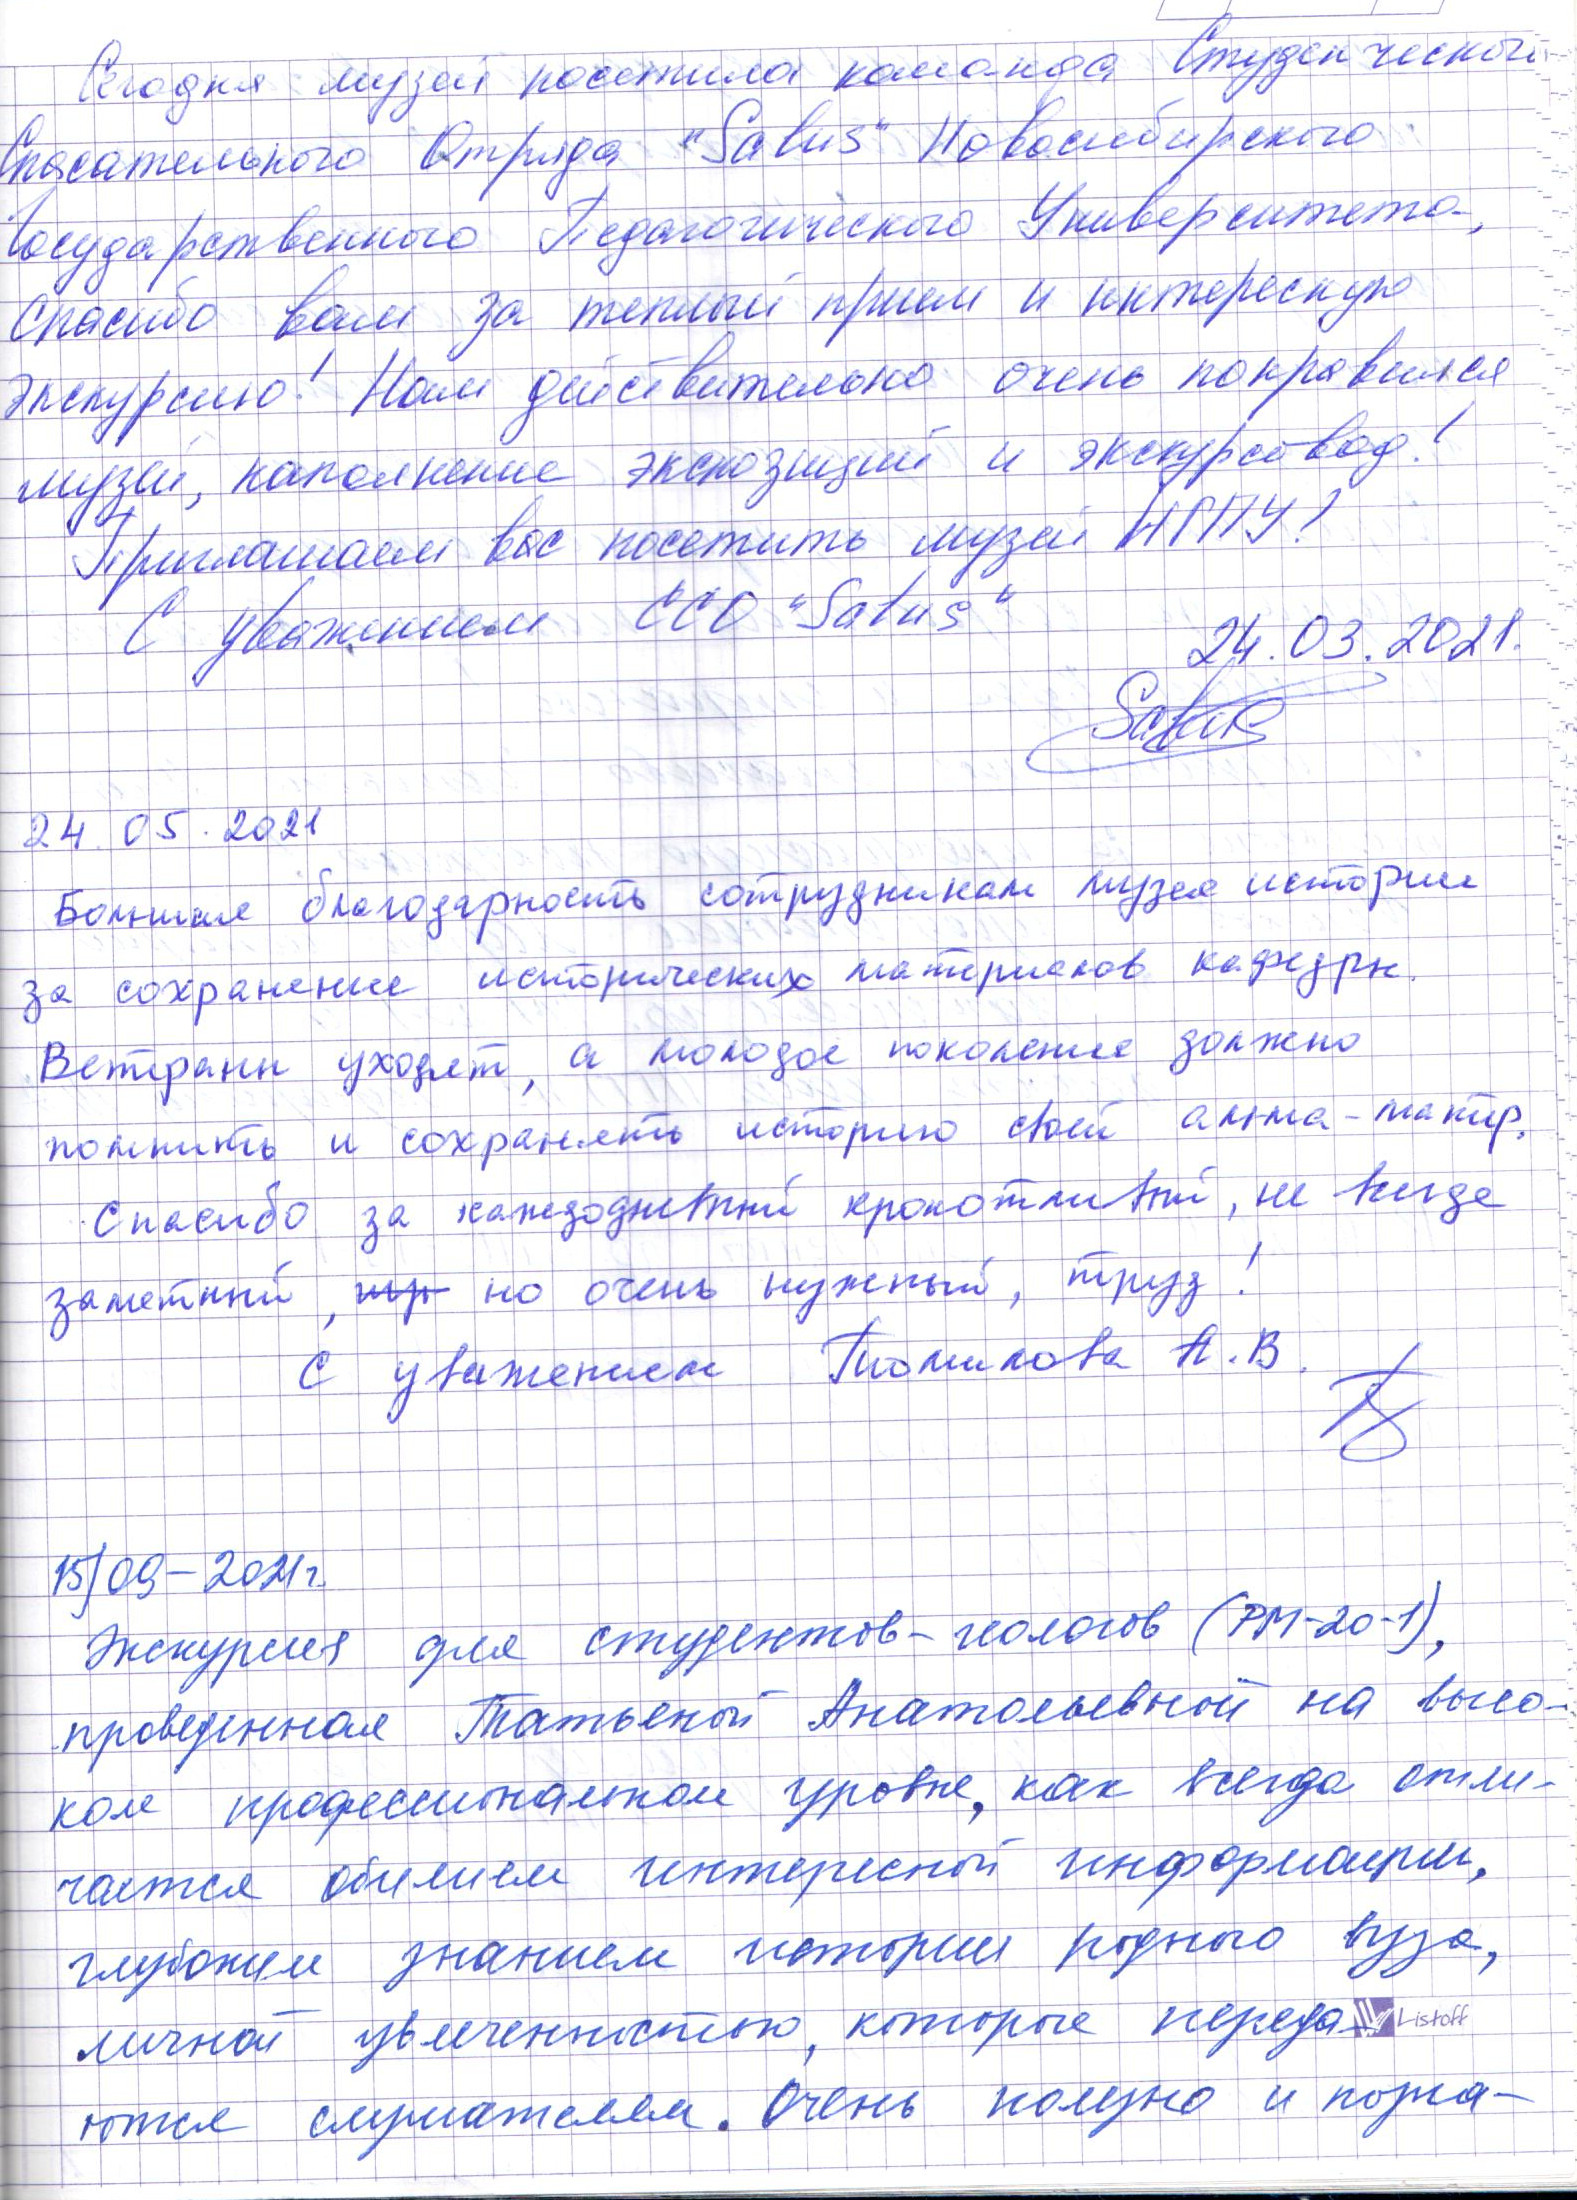 Сегодня музей посетила команда Студенческого
Спасательного Отряда "Salus" Новосибирского
Государственного Педагогического Университета,
Спасибо вам за теплый прием и интересную
экскурсию! Нам действительно очень понравился
музей, наполнение экспозиций и экскурсовод!
Приглашаем вас посетить музей НГПУ!
С уважением ССО "Salus"
24.03.2021.
Salus
24.05.2021
Большая благодарность сотрудникам музея истории
за сохранение исторических материалов кафедры.
Ветераны уходят, а молодое поколение должно
помнить и сохранять историю своей альма-матер.
Спасибо за каждодневный кропотливый, не всегда
заметный, но очень нужный, труд!
С уважением Томилова А.В.
15/09-2021г.
Экскурсия для студентов-геологов (РМ-20-1),
проведенная Татьяной Анатольевной на высо-
ком профессиональном уровне, как всегда отли-
чается обилием интересной информации,
глубоким знанием истории родного вуза,
личной увлеченностью, которые переда-
Listoff
ются слушателям. Очень полезно и позна-